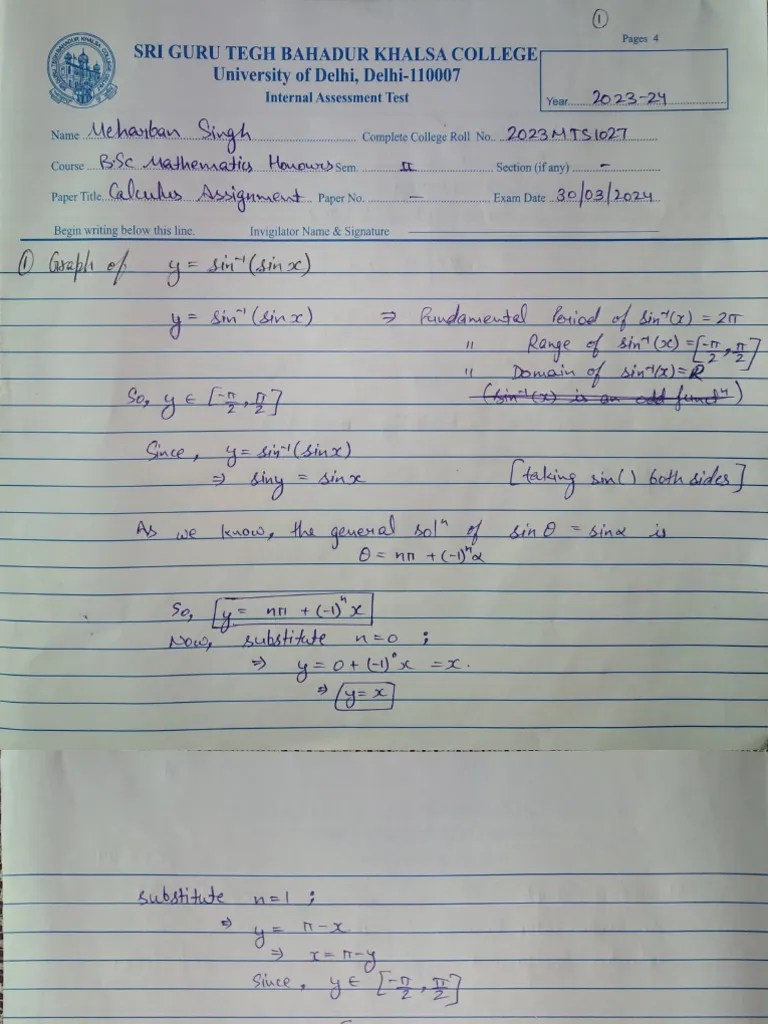 ①
Pages 4
SRI GURU TEGH BAHADUR KHALSA COLLEGE
University of Delhi, Delhi-110007
Internal Assessment Test
Year 2023-24
Name Meharban Singh Complete College Roll No. 2023MTS1027
Course B.Sc Mathematics Honours Sem. II Section (if any) -
Paper Title Calculus Assignment Paper No. - Exam Date 30/03/2024
Begin writing below this line. Invigilator Name & Signature
① Graph of y = sin⁻¹(sin x)
y = sin⁻¹(sin x) ⇒ Fundamental Period of sin⁻¹(x) = 2π
" Range of sin⁻¹(x) = [-π/2, π/2]
" Domain of sin⁻¹(x) = R
So, y ∈ [-π/2, π/2] (sin⁻¹(x) is an odd functⁿ)
Since, y = sin⁻¹(sin x)
⇒ sin y = sin x [taking sin() both sides]
As we know, the general solⁿ of sin θ = sin α is
θ = nπ + (-1)ⁿ α
So, y = nπ + (-1)ⁿ x
Now, substitute n=0 ;
⇒ y = 0 + (-1)⁰ x = x.
⇒ y = x
substitute n=1 ;
⇒ y = π - x
⇒ x = π - y
Since, y ∈ [-π/2, π/2]